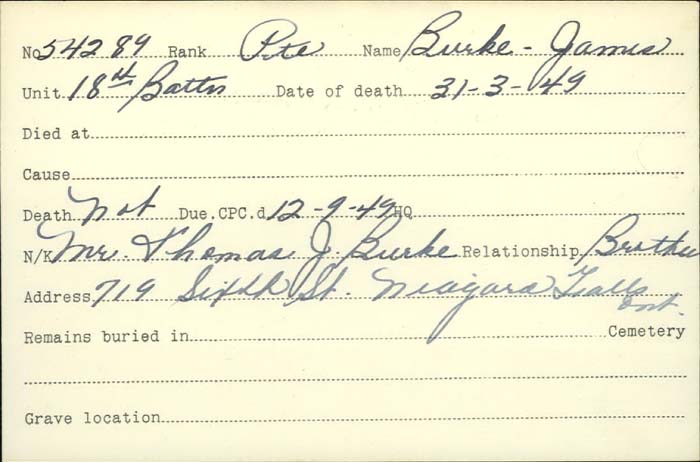 No 54289 Rank Pte Name Burke - James
Unit 18th Battn Date of death 31-3-49
Died at
Cause
Death Not Due. CPC.d 12-9-49 HQ
N/K Mr. Thomas J. Burke Relationship Brother
Address 719 Sixth St. Niagara Falls
Ont.
Remains buried in Cemetery
Grave location